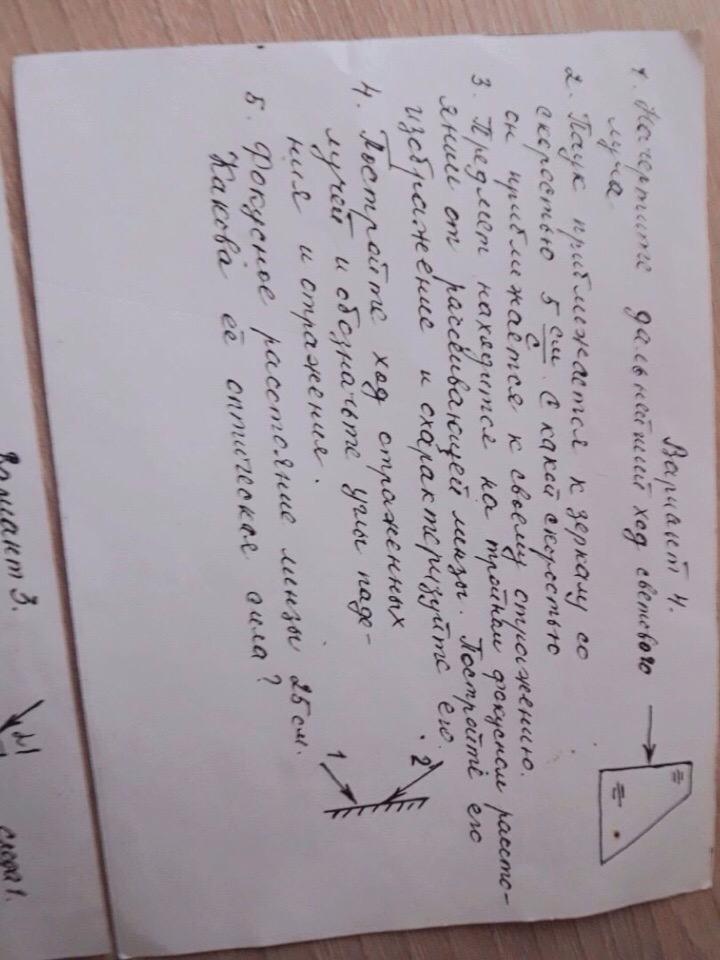 Вариант 4.
1. Начертите дальнейший ход светового
луча
2. Паук приближается к зеркалу со
скоростью 5 см/с. С какой скоростью
он приближается к своему отражению.
3. Предмет находится на тройном фокусном рассто-
янии от рассеивающей линзы. Постройте его
изображение и охарактеризуйте его.
4. Постройте ход отраженных
лучей и обозначьте углы паде-
ния и отражения.
1
2
5. Фокусное расстояние линзы 25 см.
Какова её оптическая сила?
Вариант 3.